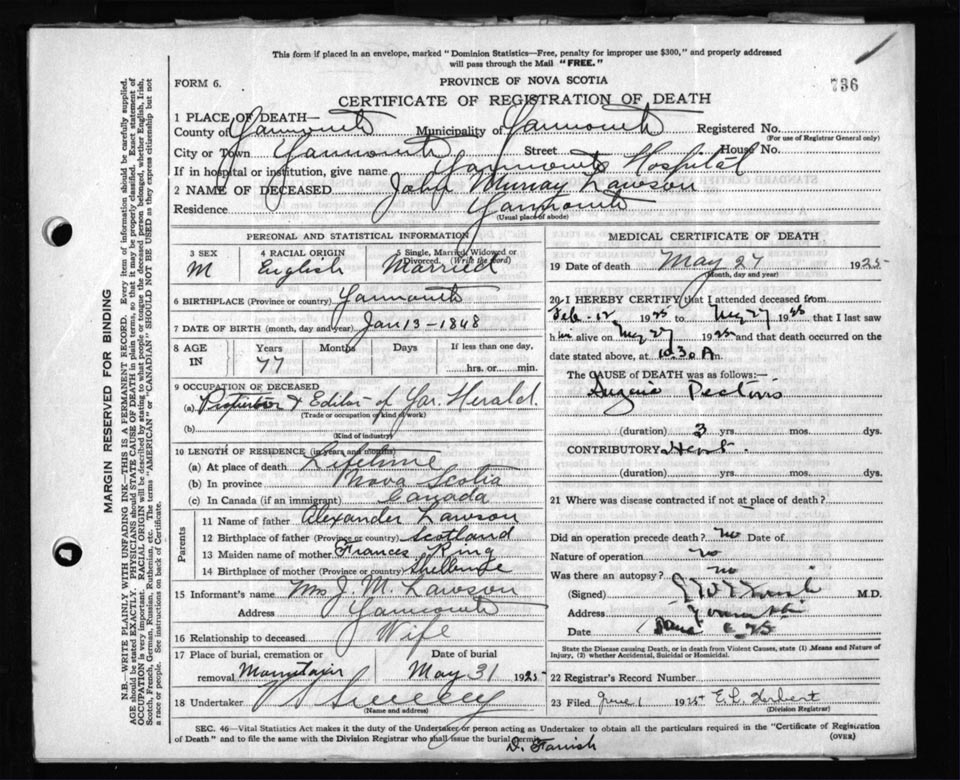 This form if placed in an envelope, marked "Dominion Statistics—Free, penalty for improper use $300," and properly addressed
will pass through the Mail "FREE."
FORM 6.
PROVINCE OF NOVA SCOTIA
736
CERTIFICATE OF REGISTRATION OF DEATH
1 PLACE OF DEATH—
County of Yarmouth Municipality of Yarmouth Registered No.
(For use of Registrar General only)
City or Town Yarmouth Street House No.
If in hospital or institution, give name Yarmouth Hospital
2 NAME OF DECEASED John Murray Lawson
Residence Yarmouth
(Usual place of abode)
PERSONAL AND STATISTICAL INFORMATION
3 SEX
M
4 RACIAL ORIGIN
English
5 Single, Married, Widowed or Divorced. (Write the word)
Married
6 BIRTHPLACE (Province or country) Yarmouth
7 DATE OF BIRTH (month, day and year) Jan 13 - 1848
8 AGE IN
Years
77
Months
Days
If less than one day,
hrs. or min.
9 OCCUPATION OF DECEASED
(a) & Editor of Yar. Herald.
(Trade or occupation or kind of work)
(b)
(Kind of industry)
10 LENGTH OF RESIDENCE (in years and months)
(a) At place of death Lifetime
(b) In province Nova Scotia
(c) In Canada (if an immigrant) Canada
Parents
11 Name of father Alexander Lawson
12 Birthplace of father (Province or country) Scotland
13 Maiden name of mother Frances King
14 Birthplace of mother (Province or country) Shelburne
15 Informant's name Mrs J. M. Lawson
Address Yarmouth
16 Relationship to deceased Wife
17 Place of burial, cremation or removal Mountain
Date of burial
May 31 1925
18 Undertaker Sweeney
(Name and address)
MEDICAL CERTIFICATE OF DEATH
19 Date of death May 27 1925
(Month, day and year)
20 I HEREBY CERTIFY that I attended deceased from
Feb - 12 1925 to May 27 1925 that I last saw
him alive on May 27 1925 and that death occurred on the
date stated above, at 10.30 A m.
The CAUSE of DEATH was as follows:—
Angina Pectoris
(duration) 3 yrs. mos. dys.
CONTRIBUTORY Heart.
(duration) yrs. mos. dys.
21 Where was disease contracted if not at place of death?
Did an operation precede death? no Date of
Nature of operation no
Was there an autopsy? no
(Signed) M.D.
Address Yarmouth
Date
State the Disease causing Death, or in death from Violent Causes, state (1) Means and Nature of
Injury, (2) whether Accidental, Suicidal or Homicidal.
22 Registrar's Record Number
23 Filed June 1 1925 E. L.
(Division Registrar)
SEC. 46—Vital Statistics Act makes it the duty of the Undertaker or person acting as Undertaker to obtain all the particulars required in the "Certificate of Registration
of Death" and to file the same with the Division Registrar who shall issue the burial permit.
(OVER)
D. Farish
MARGIN RESERVED FOR BINDING
N.B.—WRITE PLAINLY WITH UNFADING INK—THIS IS A PERMANENT RECORD. Every item of information should be carefully supplied.
AGE should be stated EXACTLY. PHYSICIANS should STATE CAUSE OF DEATH in plain terms, so that it may be properly classified. Exact statement of
OCCUPATION is very important. RACIAL ORIGIN will be described by stating to what people or tongue the deceased person belonged, whether English, Irish,
Scotch, French, German, Russian, Ruthenian, etc. The terms "AMERICAN" or "CANADIAN" SHOULD NOT BE USED as they express citizenship but not
a race or people. See instructions on back of Certificate.